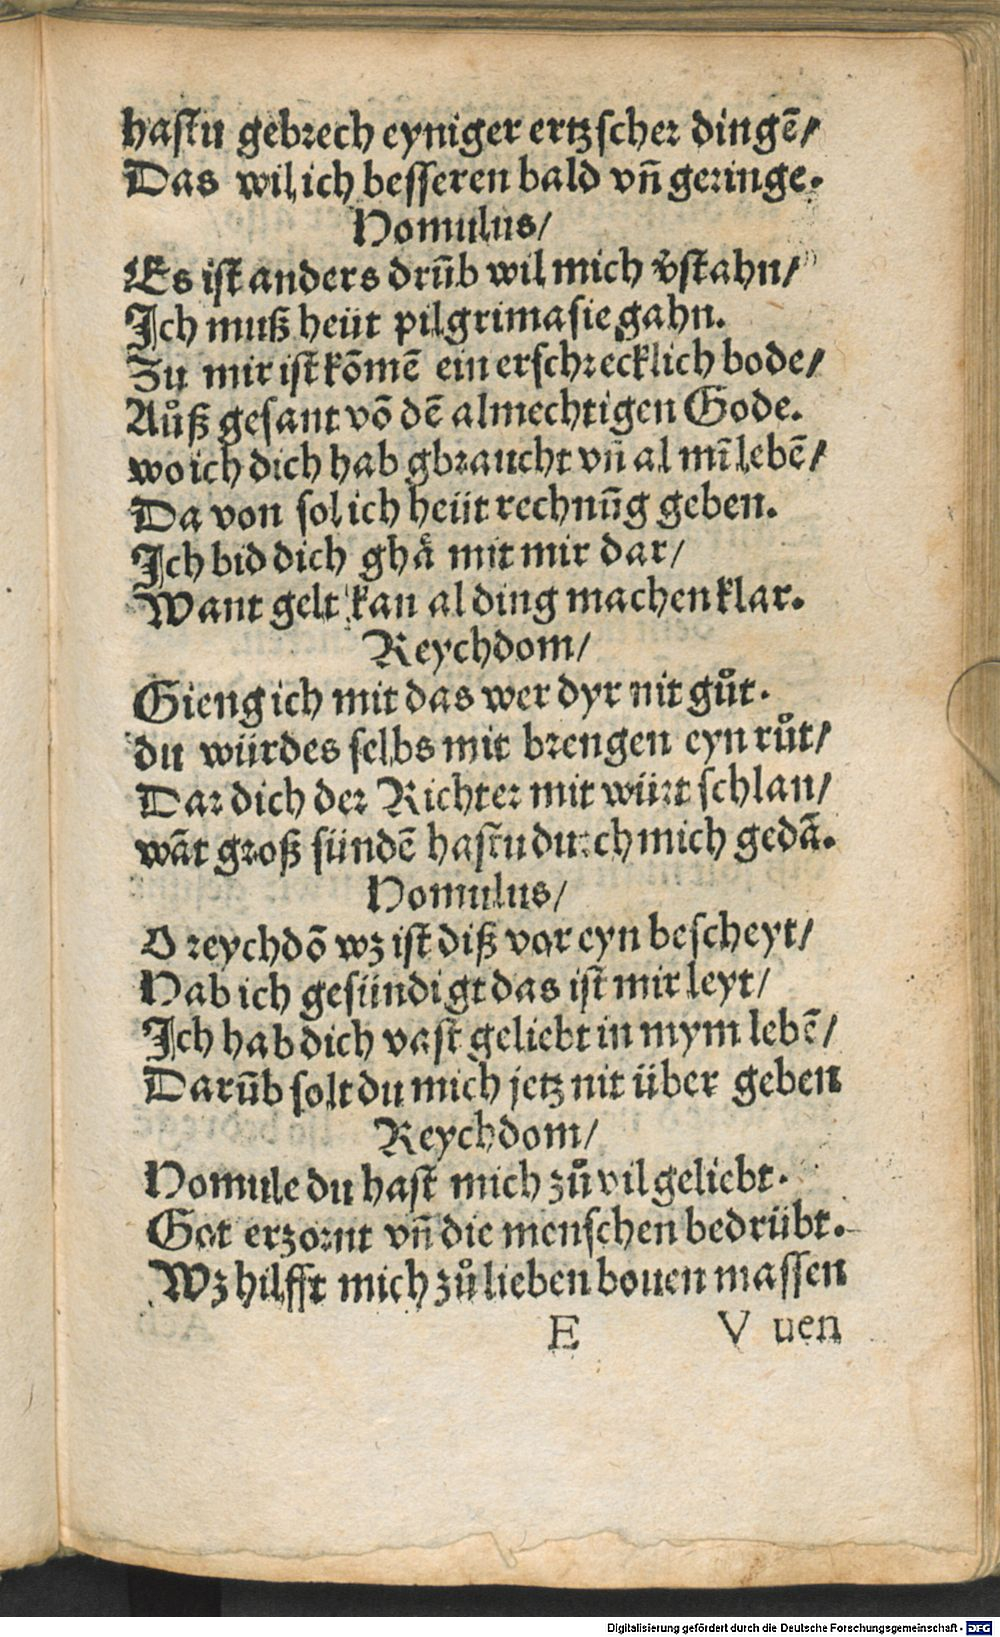 hastu gebrech eyniger ertzscher dingē/
Das wil ich besseren bald vn̄ geringe.
Homulus/
Es ist anders drūb wil mich v̄stahn/
Ich muß heüt pilgrimasie gahn.
Zu mir ist kōmē ein erschrecklich bode/
Aůß gesant vō dē almechtigen Gode.
wo ich dich hab gbraucht vn̄ al mī lebē/
Da von sol ich heüt rechnūg geben.
Ich bid dich ghā mit mir dar/
Want gelt kan al ding machen klar.
Reychdom/
Gieng ich mit das wer dyr nit gůt.
du würdes selbs mit brengen eyn růt/
Dar dich der Richter mit würt schlan/
wāt groß sündē hastu durch mich gedā.
Homulus/
O reychdō wz ist diß vor eyn bescheyt/
Hab ich gesündigt das ist mir leyt/
Ich hab dich vast geliebt in mym lebē/
Darūb solt du mich jetz nit über geben
Reychdom/
Homule du hast mich zů vil geliebt.
Got erzornt vn̄ die menschen bedrübt.
Wz hilfft mich zů lieben bouen massen
E V uen
Digitalisierung gefördert durch die Deutsche Forschungsgemeinschaft - DFG